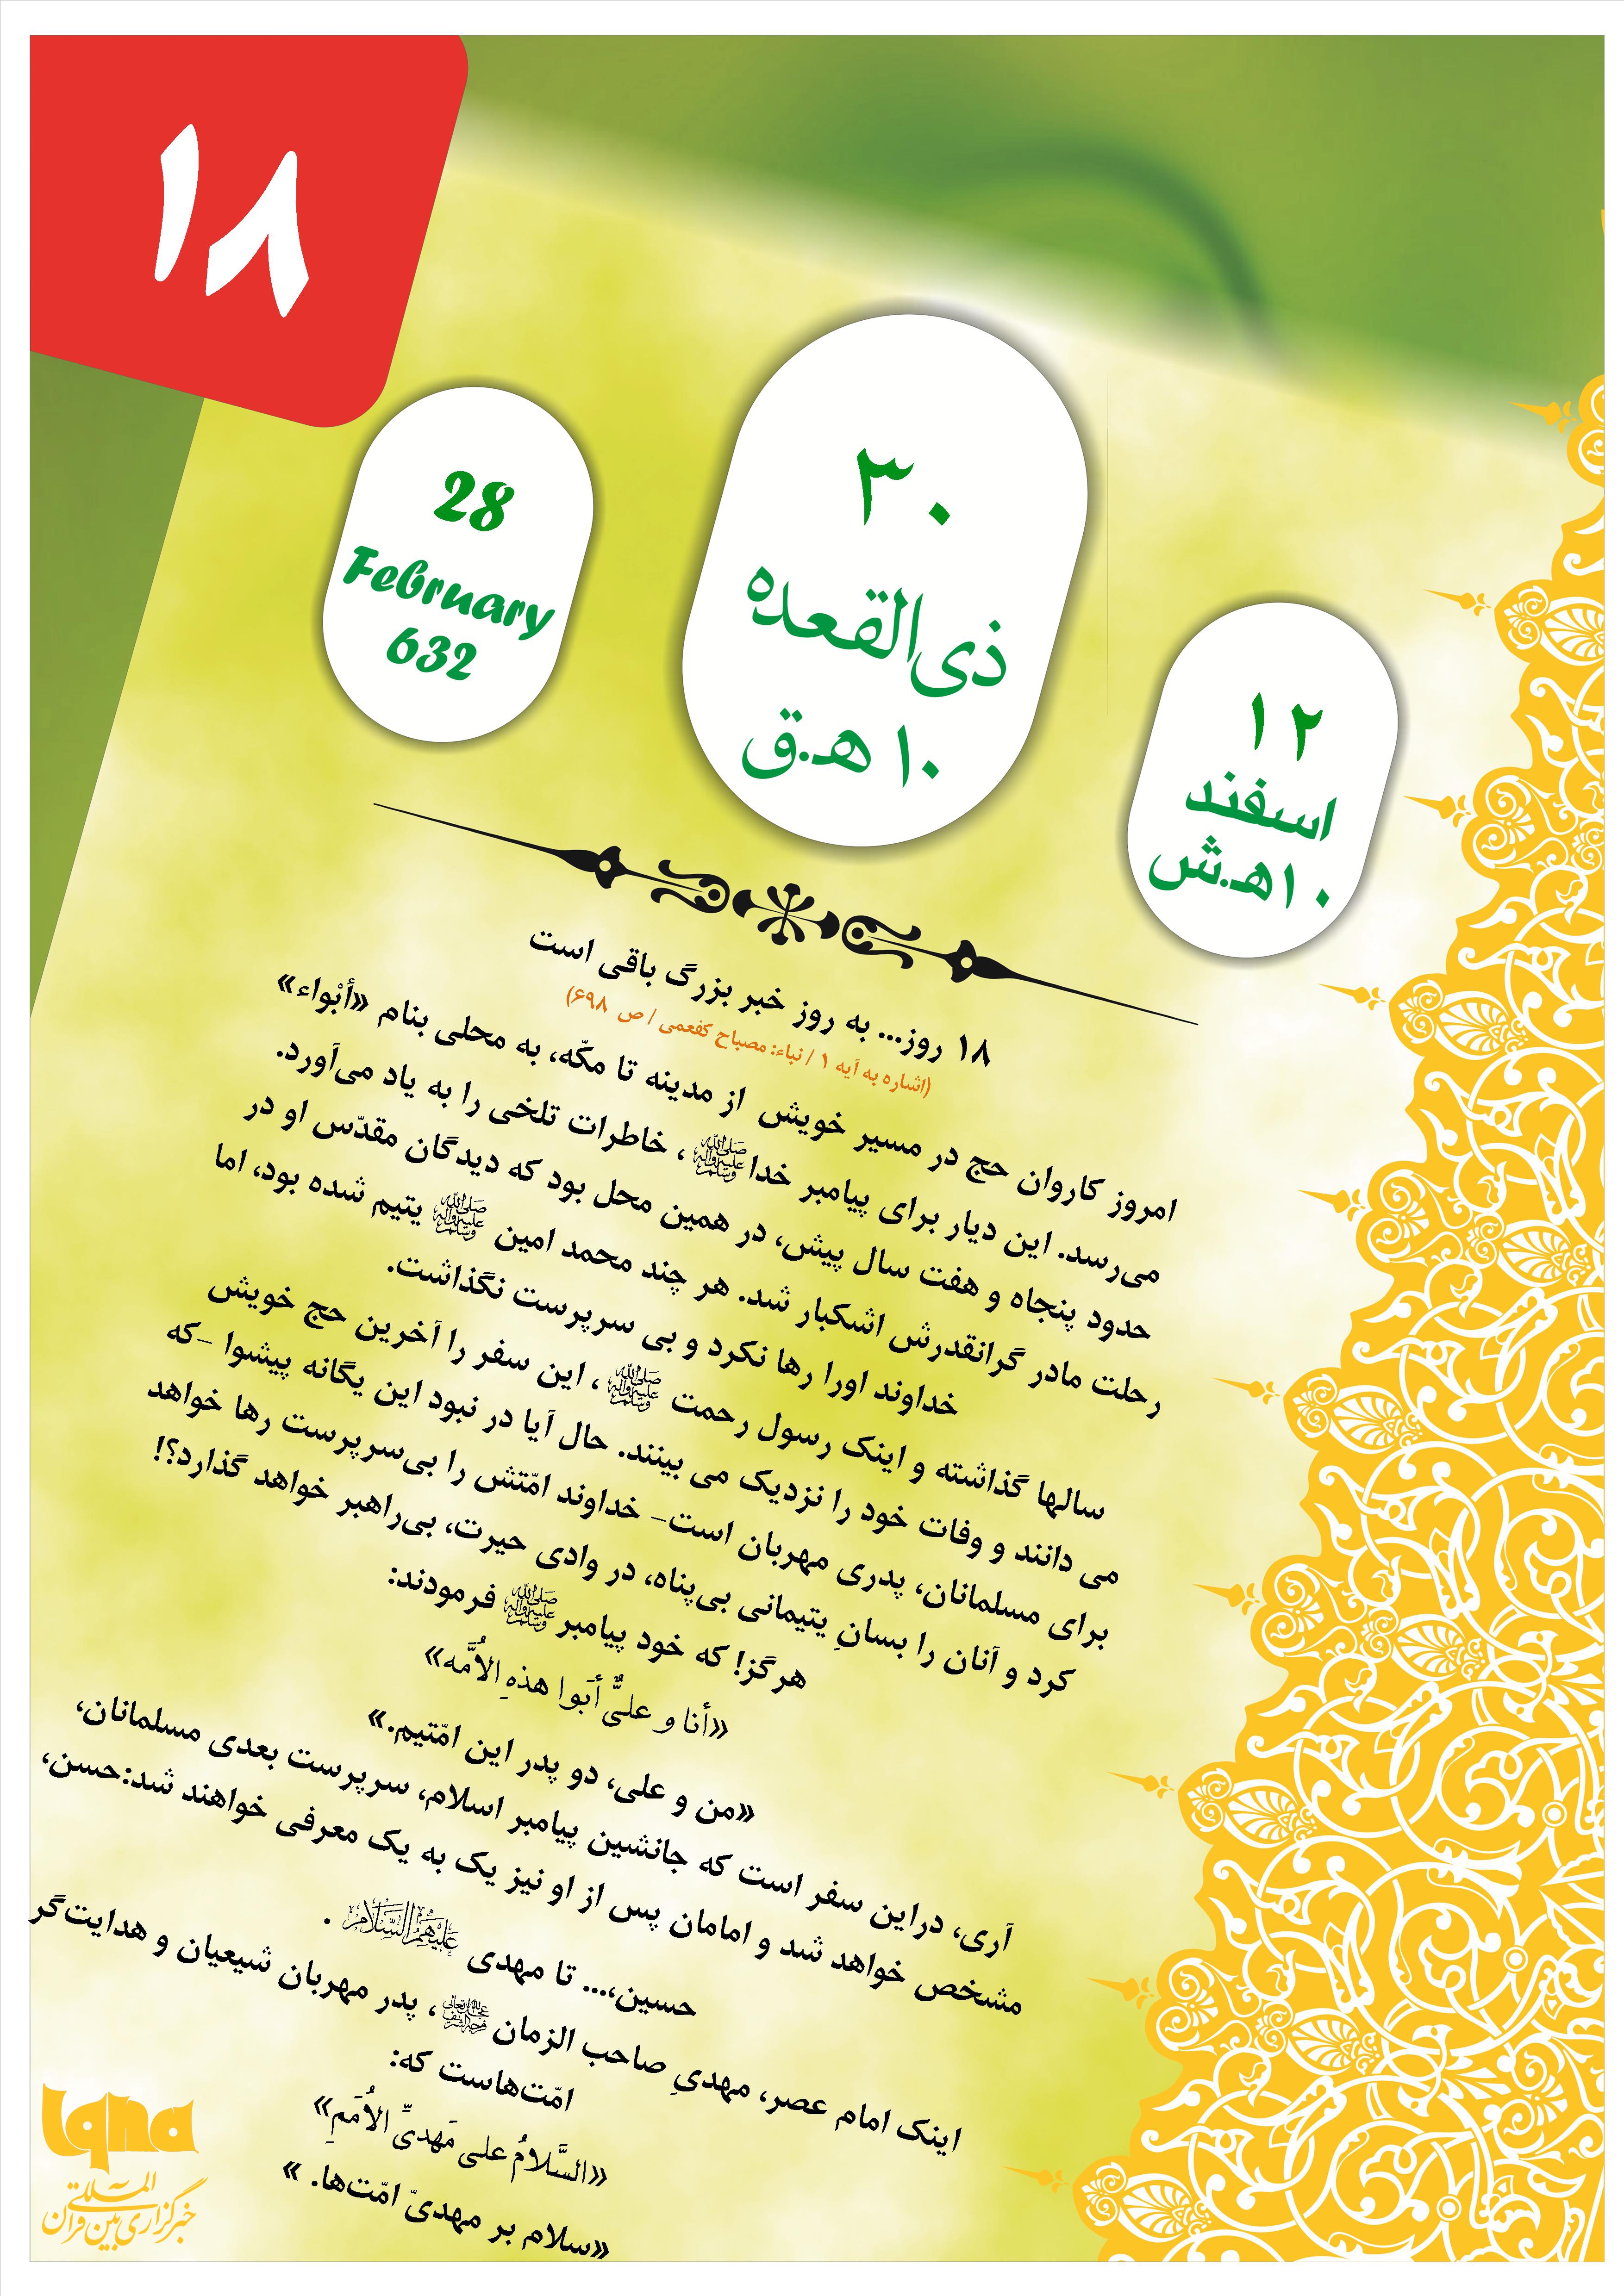 ۱۸
28
February
632
۳۰
ذی‌القعده
۱۰ هـ.ق
۱۲
اسفند
۱۰هـ.ش
۱۸ روز... به روز خبر بزرگ باقی است
(اشاره به آیه ۱ / نباء: مصباح کفعمی / ص ۶۹۸)
امروز کاروان حج در مسیر خویش از مدینه تا مکّه، به محلی بنام «أبْواء»
می‌رسد. این دیار برای پیامبر خدا صلی الله علیه وآله وسلم ، خاطرات تلخی را به یاد می‌آورد.
حدود پنجاه و هفت سال پیش، در همین محل بود که دیدگان مقدّس او در
رحلت مادر گرانقدرش اشکبار شد. هر چند محمد امین صلی الله علیه وآله وسلم یتیم شده بود، اما
خداوند اورا رها نکرد و بی سرپرست نگذاشت.
سالها گذاشته و اینک رسول رحمت صلی الله علیه وآله وسلم ، این سفر را آخرین حج خویش
می دانند و وفات خود را نزدیک می بینند. حال آیا در نبود این یگانه پیشوا -که
برای مسلمانان، پدری مهربان است- خداوند امّتش را بی‌سرپرست رها خواهد
کرد و آنان را بسانِ یتیمانی بی‌پناه، در وادی حیرت، بی‌راهبر خواهد گذارد؟!
هرگز! که خود پیامبر صلی الله علیه وآله وسلم فرمودند:
«أنا و علیٌّ أبَوا هذهِ الاُمَّه»
«من و علی، دو پدر این امّتیم.»
آری، دراین سفر است که جانشین پیامبر اسلام، سرپرست بعدی مسلمانان،
مشخص خواهد شد و امامان پس از او نیز یک به یک معرفی خواهند شد:حسن،
حسین،... تا مهدی علیهم السلام .
اینک امام عصر، مهدیِ صاحب الزمان عجل الله تعالی فرجه الشریف ، پدر مهربان شیعیان و هدایت‌گر
امّت‌هاست که:
«السَّلامُ علی مَهدیِّ الاُمَمِ»
«سلام بر مهدیّ امّت‌ها. »
Iqna
خبرگزاری بین المللی قرآن